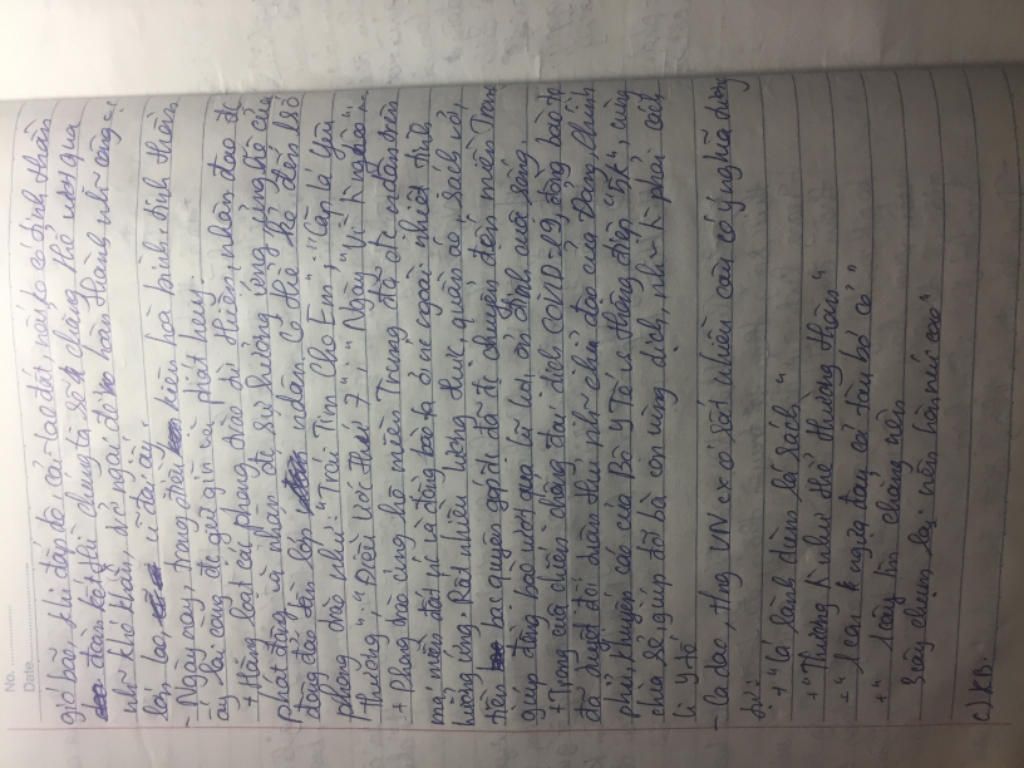 No.
Date
gió bão khi đắp đê, cải tạo đất, nếu ko có tinh thần
đoàn kết thì chúng ta sẽ k chẳng thể vượt qua
những khó khăn, trở ngại để hoàn thành những công c
lớn lao, vĩ đại ấy.
- Ngày nay, trong điều kiện hoà bình, tinh thần
ấy lại càng đc giữ gìn và phát huy.
+ Hàng loạt các phong trào từ thiện, nhân đạo đc
phát động và nhận đc sự hưởng ứng, ủng hộ của
đông đảo tầng lớp nhân dân. Có thể kể đến 1 số
phong trào như: "Trái Tim Cho Em", "Cặp lá yêu
thương", "Điều ước thứ 7", "Ngày vì ng nghèo"...
+ Phong trào ủng hộ miền Trung đã đc nhân dân trên
mọi miền đất nước và đồng bào ta ở nc ngoài nhiệt tình
hưởng ứng. Rất nhiều lương thực, quần áo, sách vở,
tiền bạc quyên góp đc đã đc chuyển đến miền Trung
giúp đồng bào vượt qua lũ lụt, ổn định cuộc sống.
+ Trong cuộc chiến chống đại dịch COVID-19, đồng bào ta
đã một đối tuân thủ chỉ đạo của Đảng, Chính
phủ, khuyến cáo của Bộ Y Tế về thông điệp "5K", cùng
chia sẻ, giúp đỡ bà con vùng dịch, những ng phải cách
li y tế
- Ca dao, tng VN cx có rất nhiều câu có ý nghĩa tương
tự:
+ "Lá lành đùm lá rách"
+ "Thương ng như thể thương thân"
+ "1 con ngựa đau cả tàu bỏ cỏ"
+ "1 cây làm chẳng nên
3 cây chụm lại nên hòn núi cao"
c) KB.